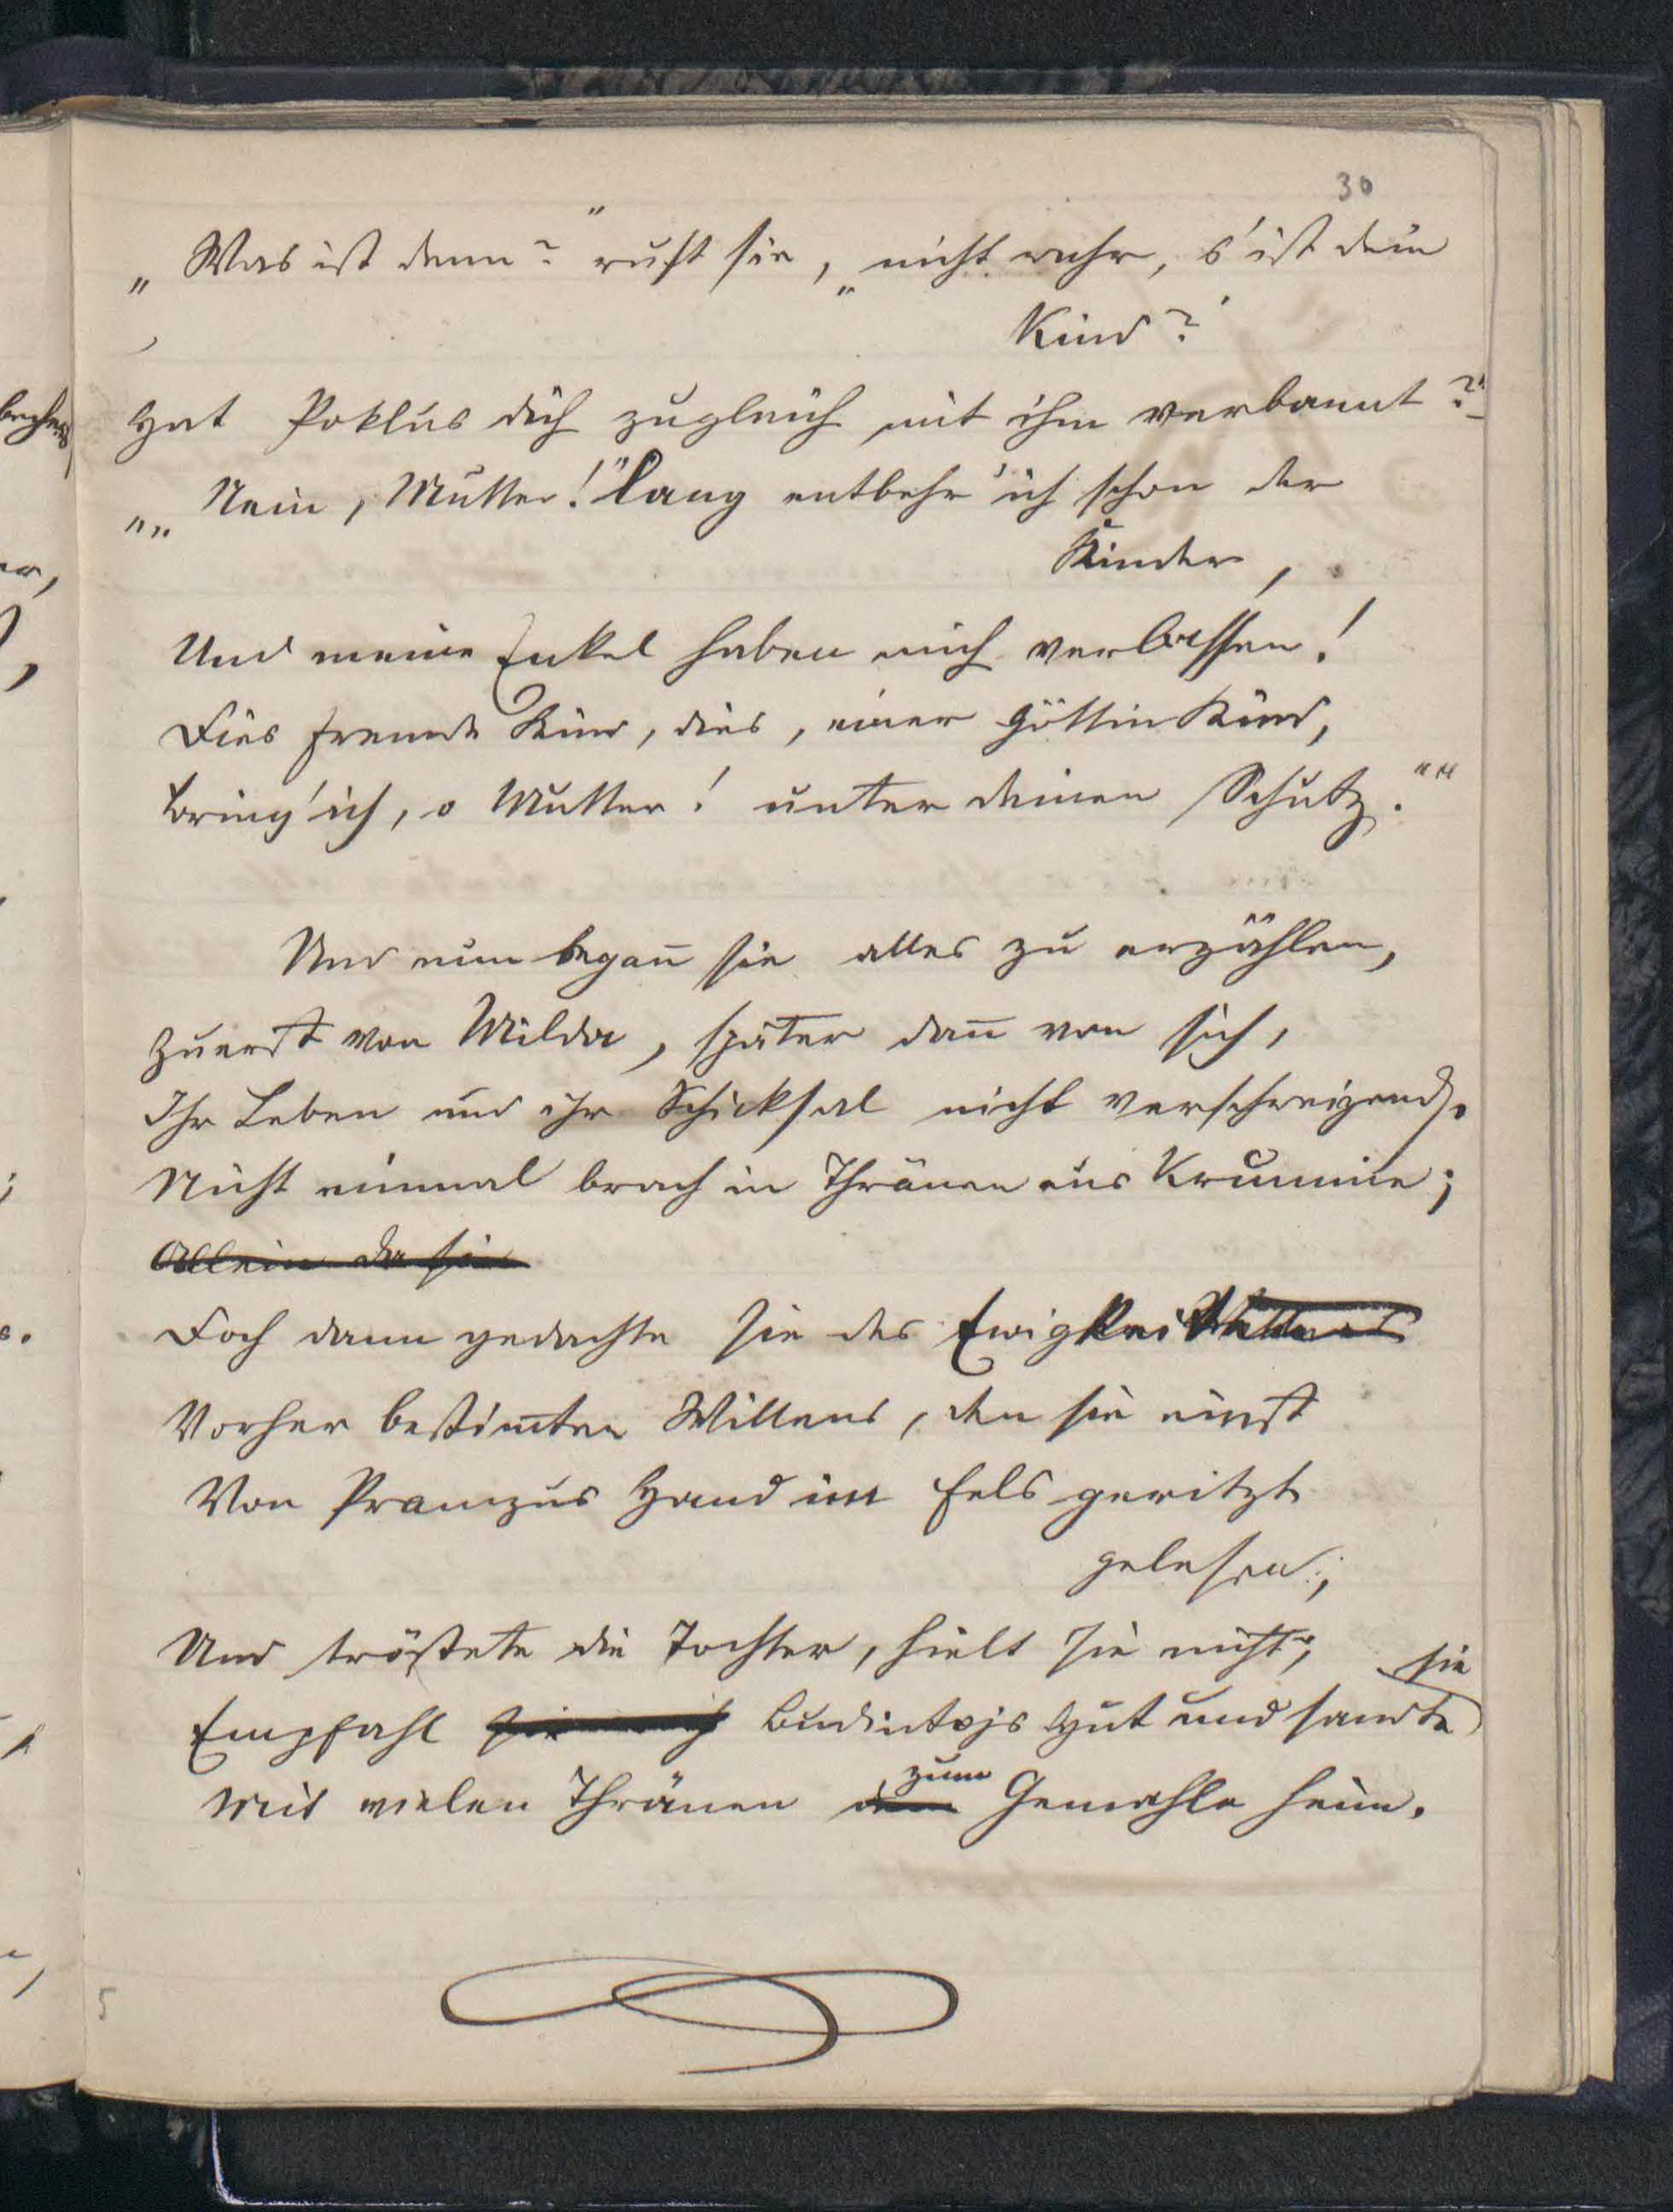 30
„Was ist denn?" ruft sie, „nicht wahr, s'ist dein
Kind?
Hat Poklus dich zugleich mit ihm verbannt?"
„„Nein, Mutter!" Lang entbehr' ich schon der
Kinder,
Und meine Enkel haben mich verlassen!
Dies fremde Kind, dies, einer Göttin Kind,
Bring' ich, o Mutter! unter deinen Schutz.""
Und nun began̄ sie alles zu erzählen,
Zuerst von Milda, später dan̄ von sich,
Ihr Leben und ihr Schicksal nicht verschweigend.
Nicht einmal brach in Thränen aus Krumine;
Allein da sie
Doch dann gedachte sie des Ewigkeit
Vorher bestim̄ten Willens, den sie einst
Von Pramzus Hand im Fels geritzt
gelesen;
Und tröstete die Tochter, hielt sie nicht;
sie
Empfahl Budintojs Hut und sandte
zum
Mit vielen Thränen dem Gemahle heim.
5